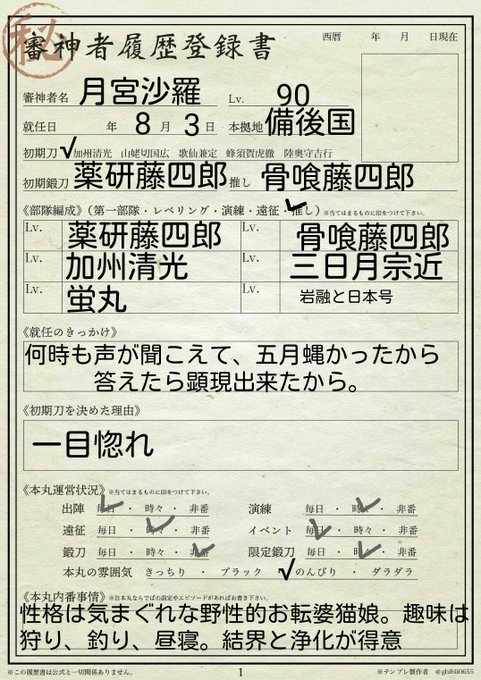 秘
審神者履歴登録書
西暦 年 月 日現在
審神者名 月宮沙羅 Lv. 90
就任日 年 8 月 3 日 本拠地 備後国
初期刀 ✓加州清光 山姥切国広 歌仙兼定 蜂須賀虎徹 陸奥守吉行
初期鍛刀 薬研藤四郎 推し 骨喰藤四郎
《部隊編成》(第一部隊・レベリング・演練・遠征・推し) ※当てはまるものに印をつけて下さい。
Lv. 薬研藤四郎 Lv. 骨喰藤四郎
Lv. 加州清光 Lv. 三日月宗近
Lv. 蛍丸 Lv. 岩融と日本号
《就任のきっかけ》
何時も声が聞こえて、五月蝿かったから
答えたら顕現出来たから。
《初期刀を決めた理由》
一目惚れ
《本丸運営状況》※当てはまるものに印をつけて下さい。
出陣 毎日 ・ 時々 ・ 非番 演練 毎日 ・ 時々 ・ 非番
遠征 毎日 ・ 時々 ・ 非番 イベント 毎日 ・ 時々 ・ 非番
鍛刀 毎日 ・ 時々 ・ 非番 限定鍛刀 毎日 ・ 時々 ・ 非番
本丸の雰囲気 きっちり ・ ブラック ✓のんびり ・ ダラダラ
《本丸内番事情》※自本丸ならではの設定やエピソードがあればお書き下さい。
性格は気まぐれな野性的お転婆猫娘。趣味は
狩り、釣り、昼寝。結界と浄化が得意
※この履歴書は公式と一切関係ありません。 1 ※テンプレ製作者 @ghibli0655